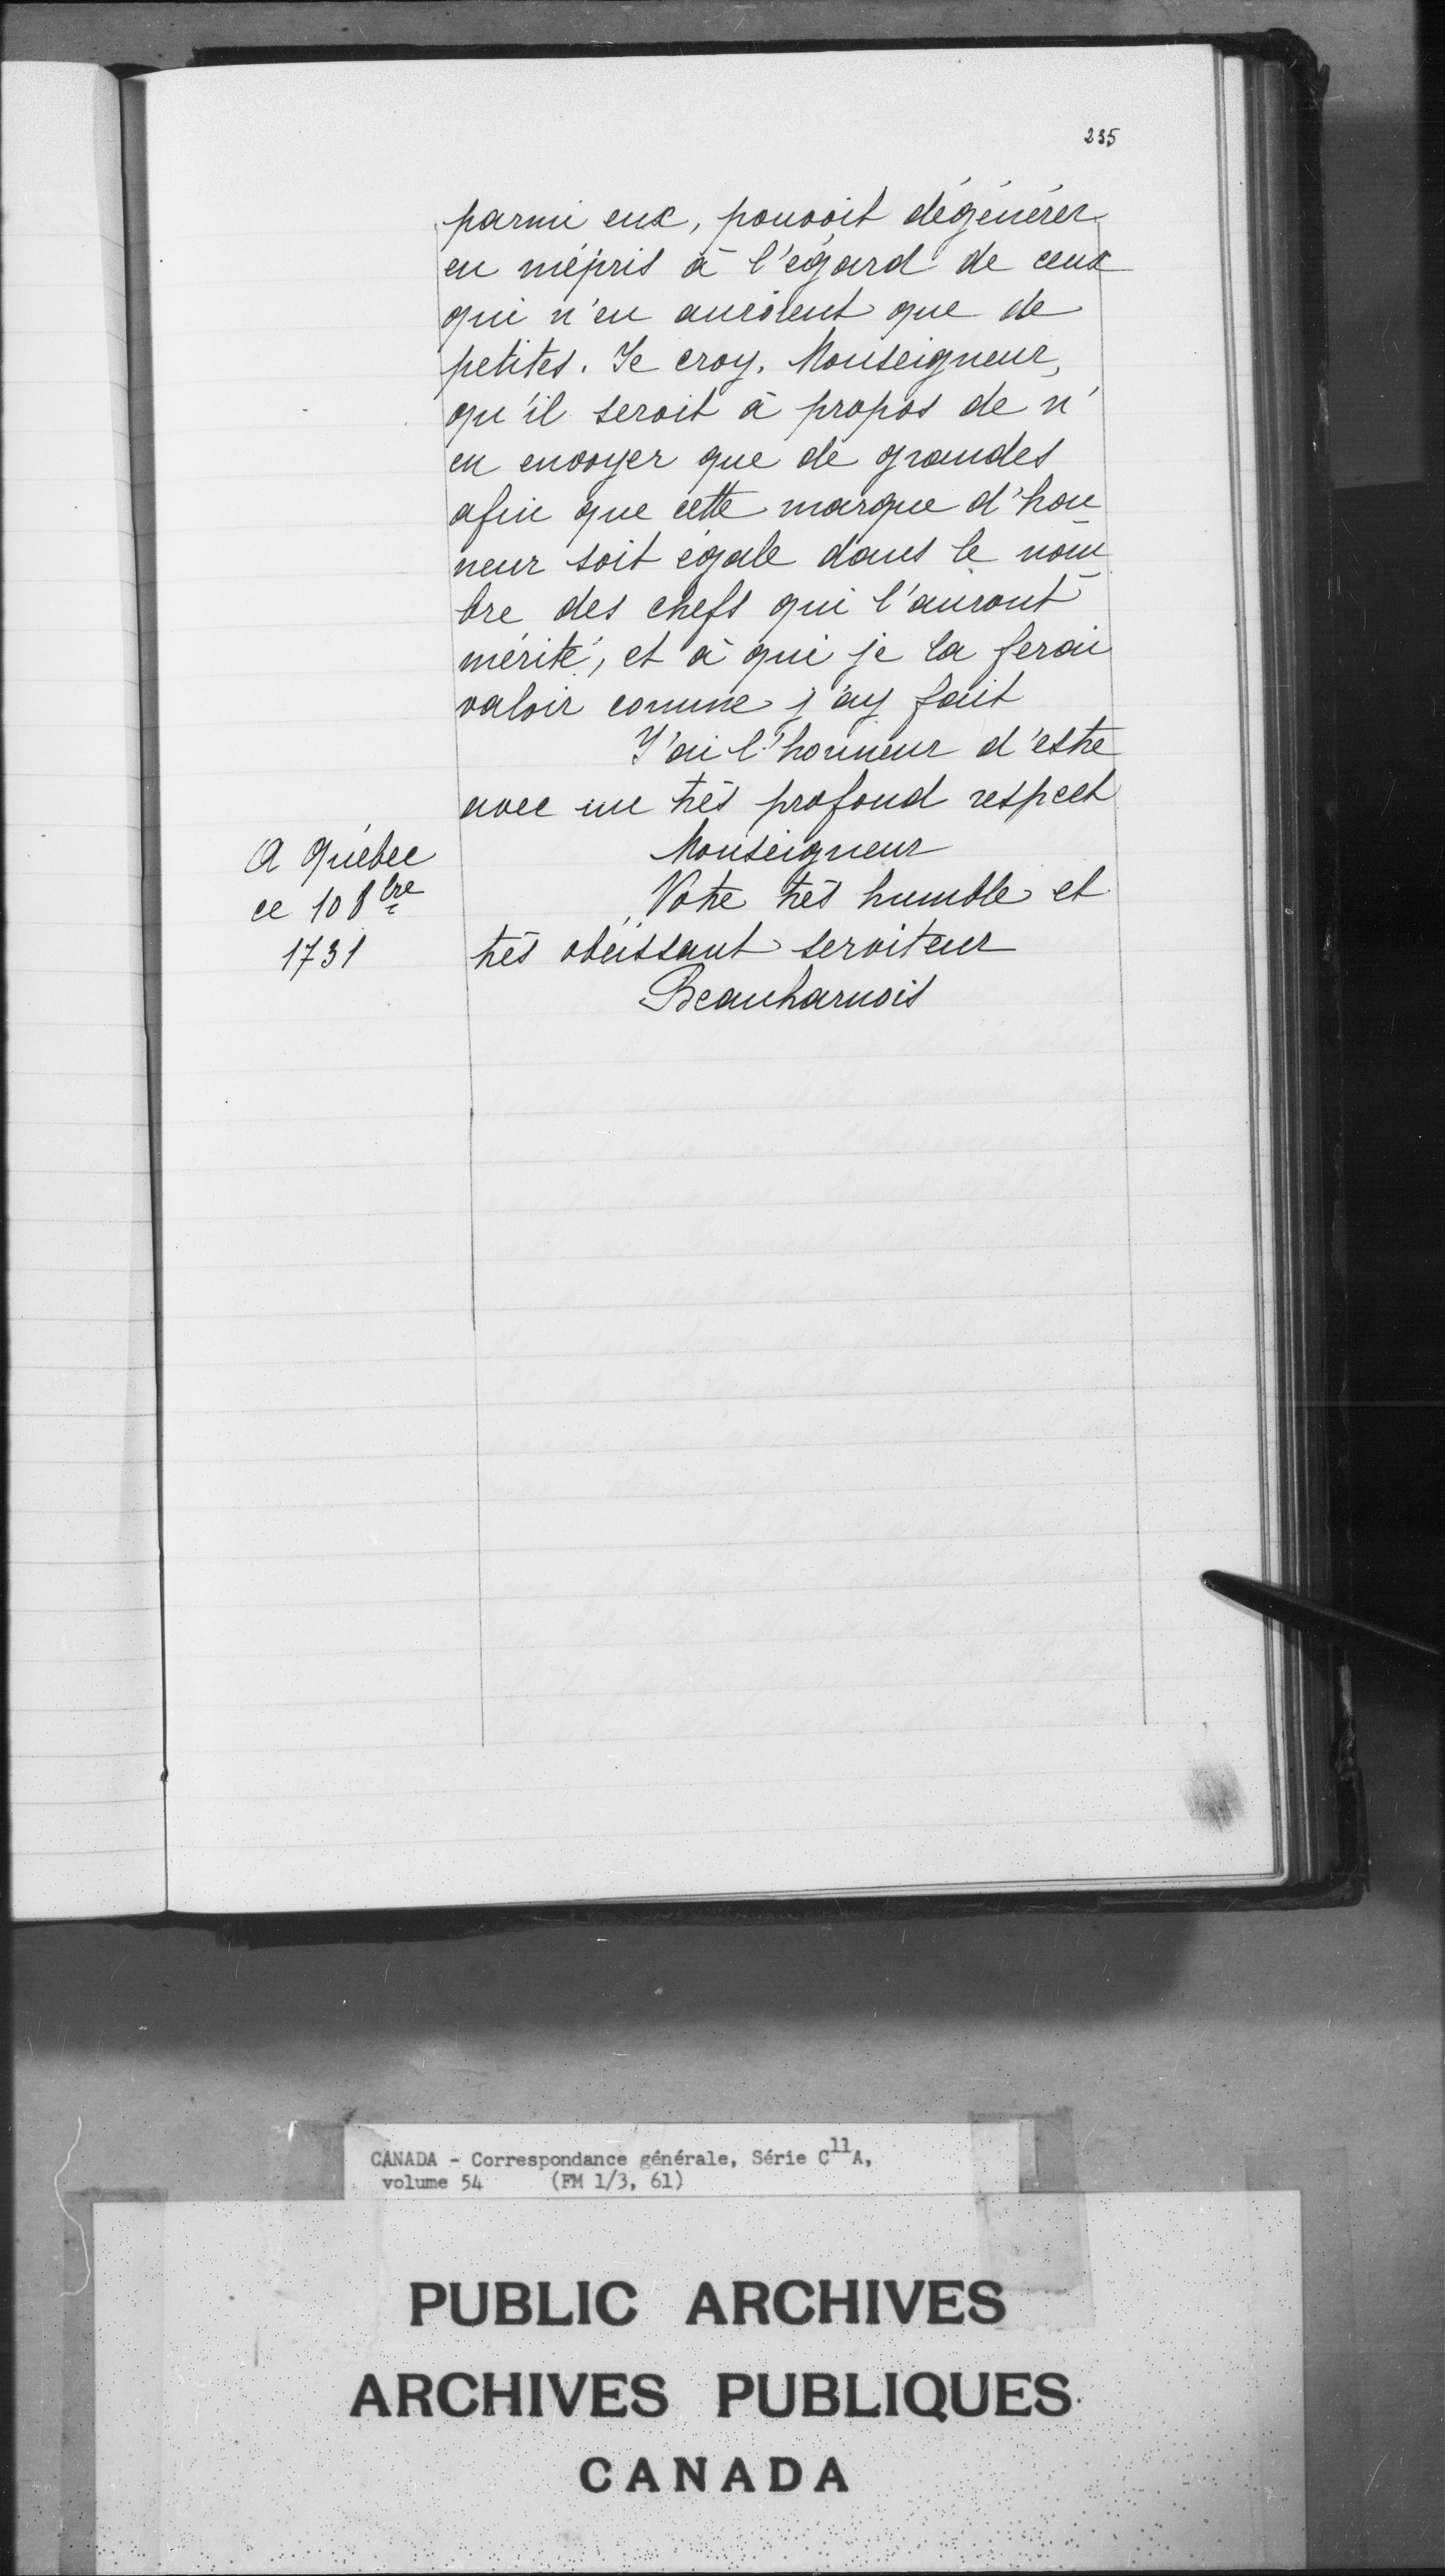 235
parmi eux, pouvoit dégénérer
en mépris à l'égard de ceux
qui n'en auroient que de
petites. Je croy, Monseigneur,
qu'il seroit à propos de n'
en envoyer que de grandes
afin que cette marque d'hon
neur soit égale dans le nom
bre des chefs qui l'auront
mérité, et à qui je la ferai
valoir comme j'ay fait
J'ai l'honneur d'estre
avec un très profond respect
Monseigneur
Votre très humble et
très obéissant serviteur
Beauharnois
A Québec
ce 10 8bre
1731
CANADA - Correspondance générale, Série C11A,
volume 54 (FM 1/3, 61)
PUBLIC ARCHIVES
ARCHIVES PUBLIQUES
CANADA